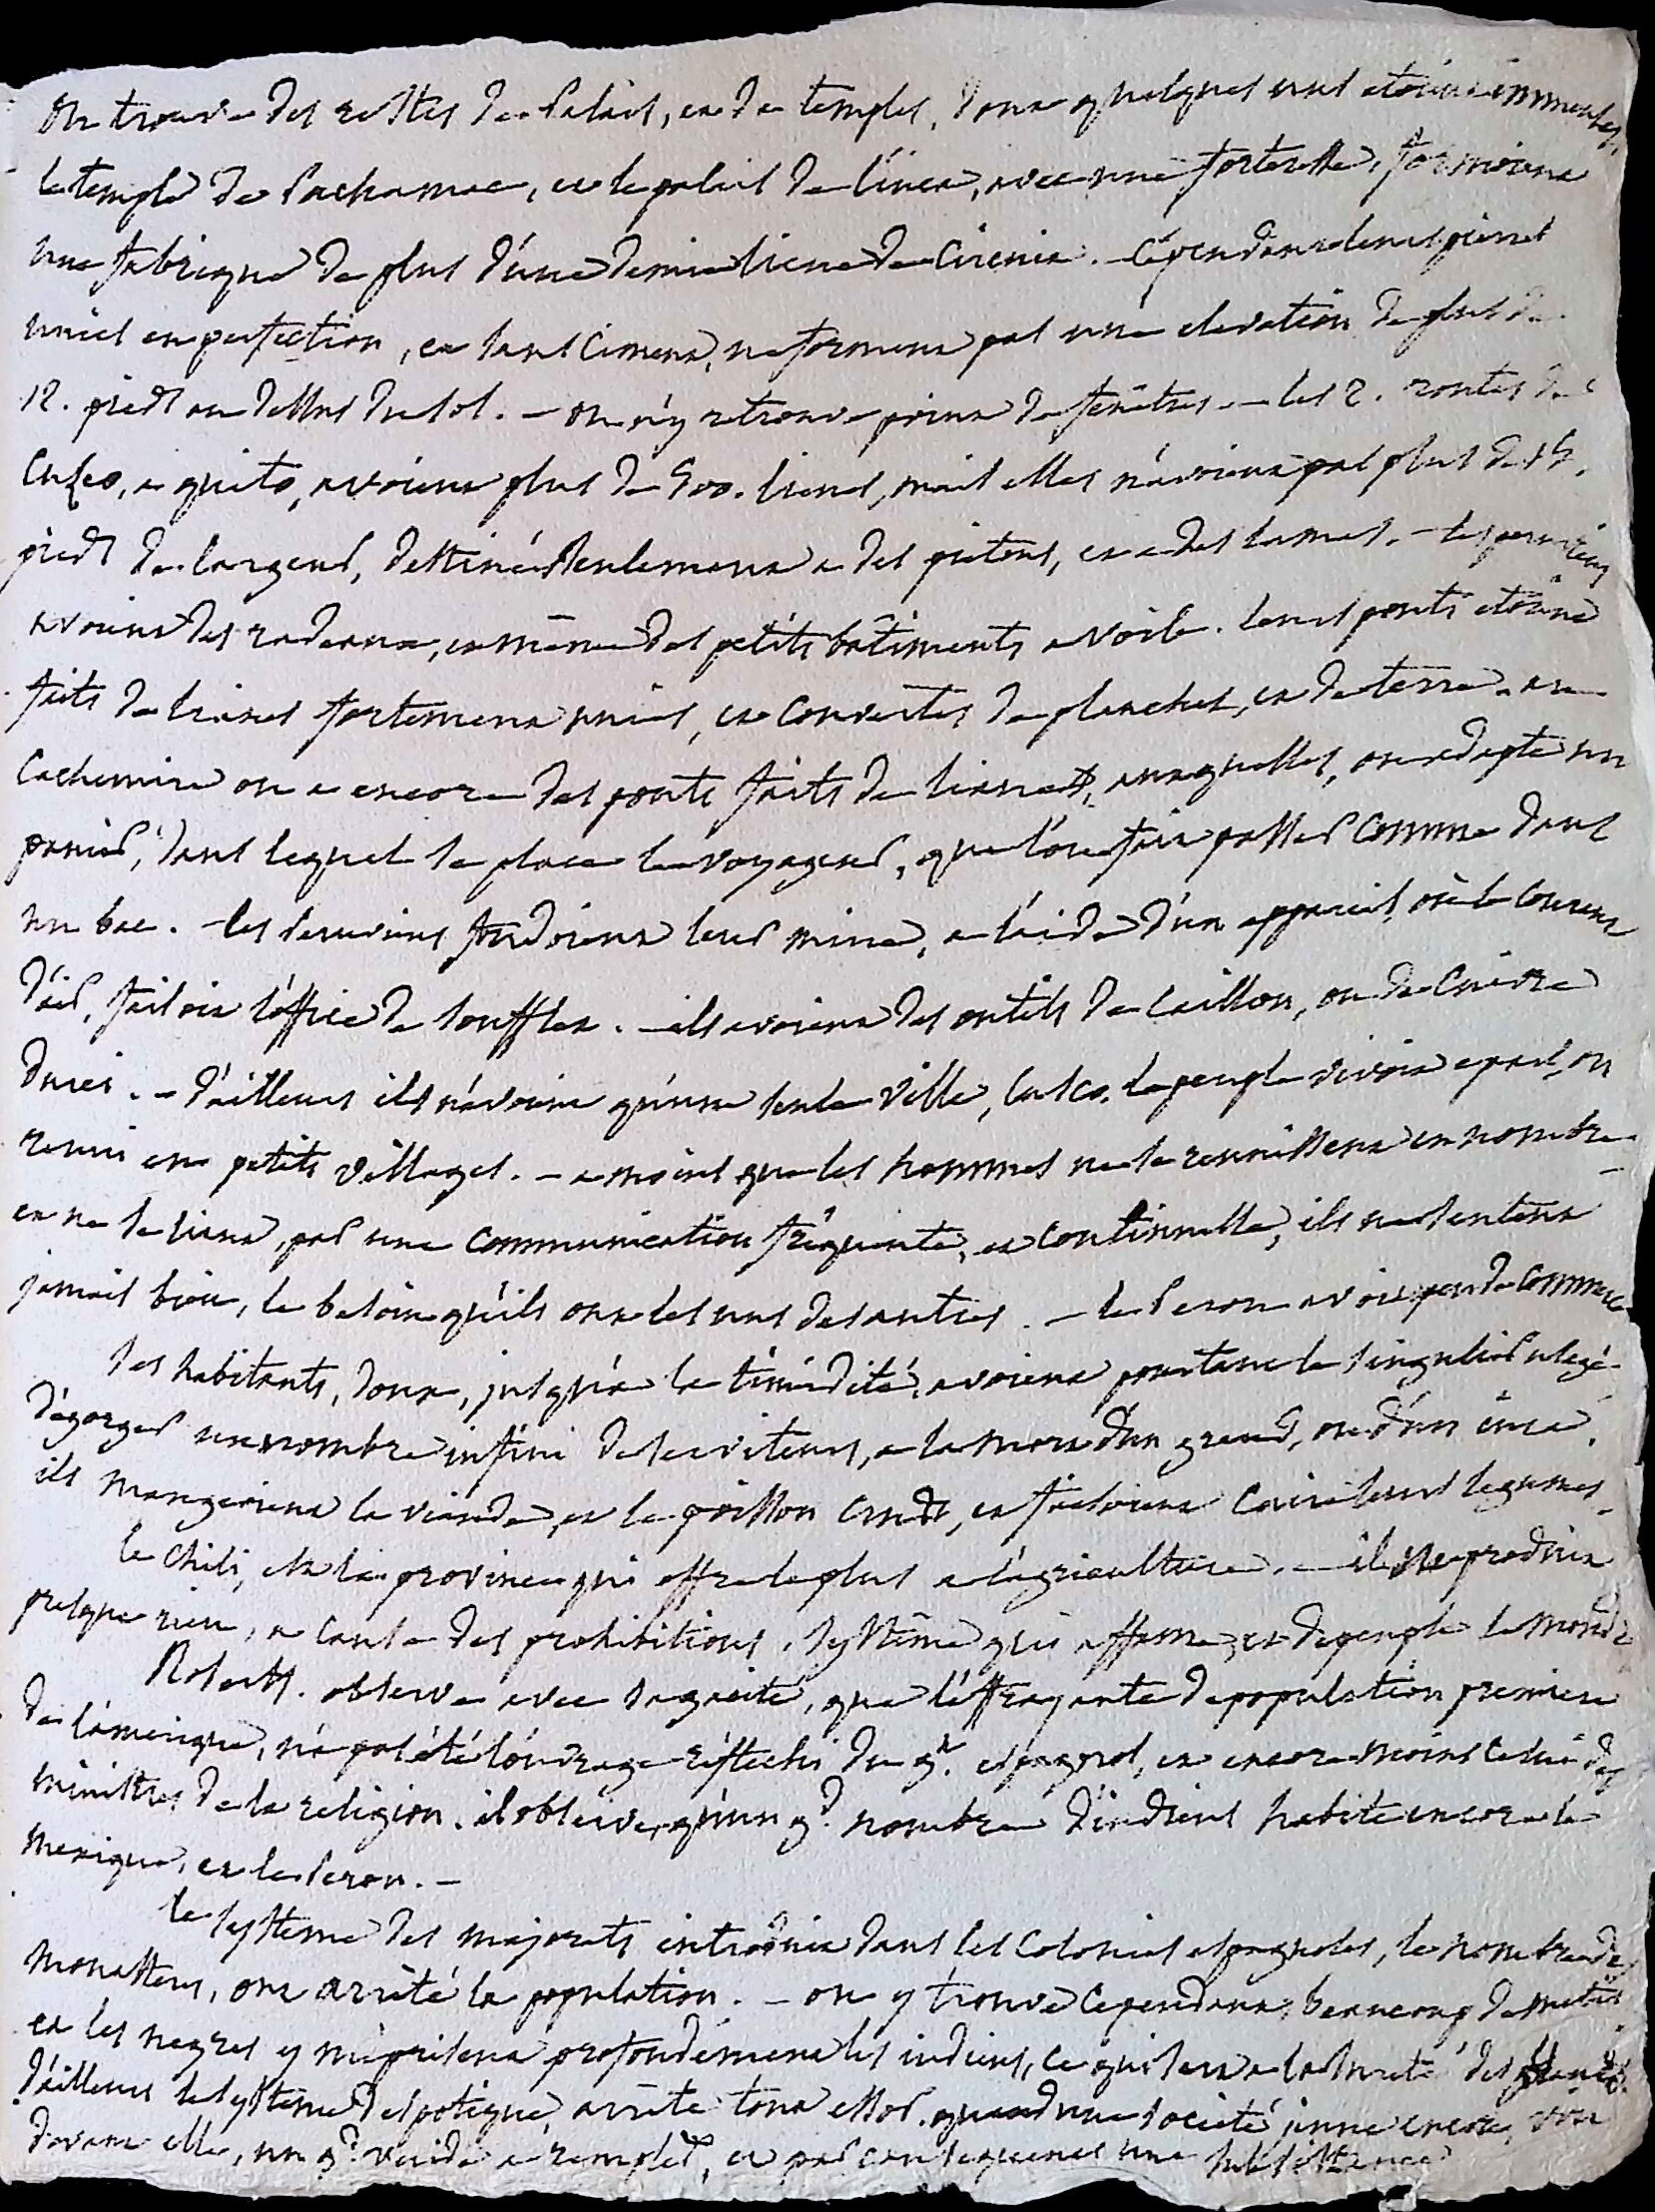 On trouve des restes de Palais, et de temples, dont quelques uns etoient immenses.
le temple de Pachamac, et le palais de l'inca, avec une forteresse, formoient
une fabrique de plus d'une demie lieue de circuit. - Cependant leurs pierres
unies en perfection, et sans ciment, ne forment pas une elevation de plus de
12. pieds au dessus du sol. - on n'y retrouve point de fenêtres. - les 2. routes de
Cusco, a quito, avoient plus de 500. lieues, mais elles n'avoient pas plus de 15.
pieds de largeur, destinées seulement a des piétons, et a des lamas. - les peruviens
avoient des radeaux, et même des petits bâtiments a voile. leurs ponts etoient
faits de lianes fortement unies, et couvertes de planches, et de terre. au
Cachemire on a encore des ponts faits de lianes, auxquelles, on adapte un
panier, dans lequel se place le voyageur, que l'on fait passer comme dans
un bac. - les Peruviens fondoient leur mine, a l'aide d'un appareil, où le courant
d'air, faisoit l'office de soufflet. - ils avoient des outils de caillou, ou de cuivre
durci. - d'ailleurs ils n'avoient qu'une seule ville, Cusco, le peuple vivoit epars, ou
reuni en petits villages. - a moins que les hommes ne se reunissent en nombre
et ne se lient, par une communication fréquente, et continuelle, ils ne sentent
jamais bien, le besoin qu'ils ont les uns des autres. - le Perou avoit peu de commerce
ses habitants, doux, jusqu'à la timidité, avoient pourtant le singulier usage
d'égorger un nombre infini de serviteurs, a la mort d'un grand, ou d'un inca.
ils mangeoient la viande, et le poisson cruds, et faisoient cuire leurs legumes.
le Chili, est la province qui offre le plus a l'agriculture. - il ne produit
presque rien, a cause des prohibitions, systême qui affame, et depeuple le monde
Roberts. observe avec sagacité, que l'effrayante depopulation premiere
de l'amerique, n'a pas été l'ouvrage réflechi du gt. espagnol, et encore moins celui des
ministres de la religion. il observe, qu'un gd. nombre d'indiens habite encore le
mexique, et le Perou. -
le systeme des majorats introduit dans les colonies espagnoles, le nombre des
monasteres, ont arrêté la population. - on y trouve cependant, beaucoup de metis
et les negres y méprisent profondément les indiens, ce qui sert a la sureté des blancs.
d'ailleurs le systême despotique, arrête tout essor. quand une societé jeune encore, voit
devant elle, un gd. vuide a remplir, et par consequent une subsistance